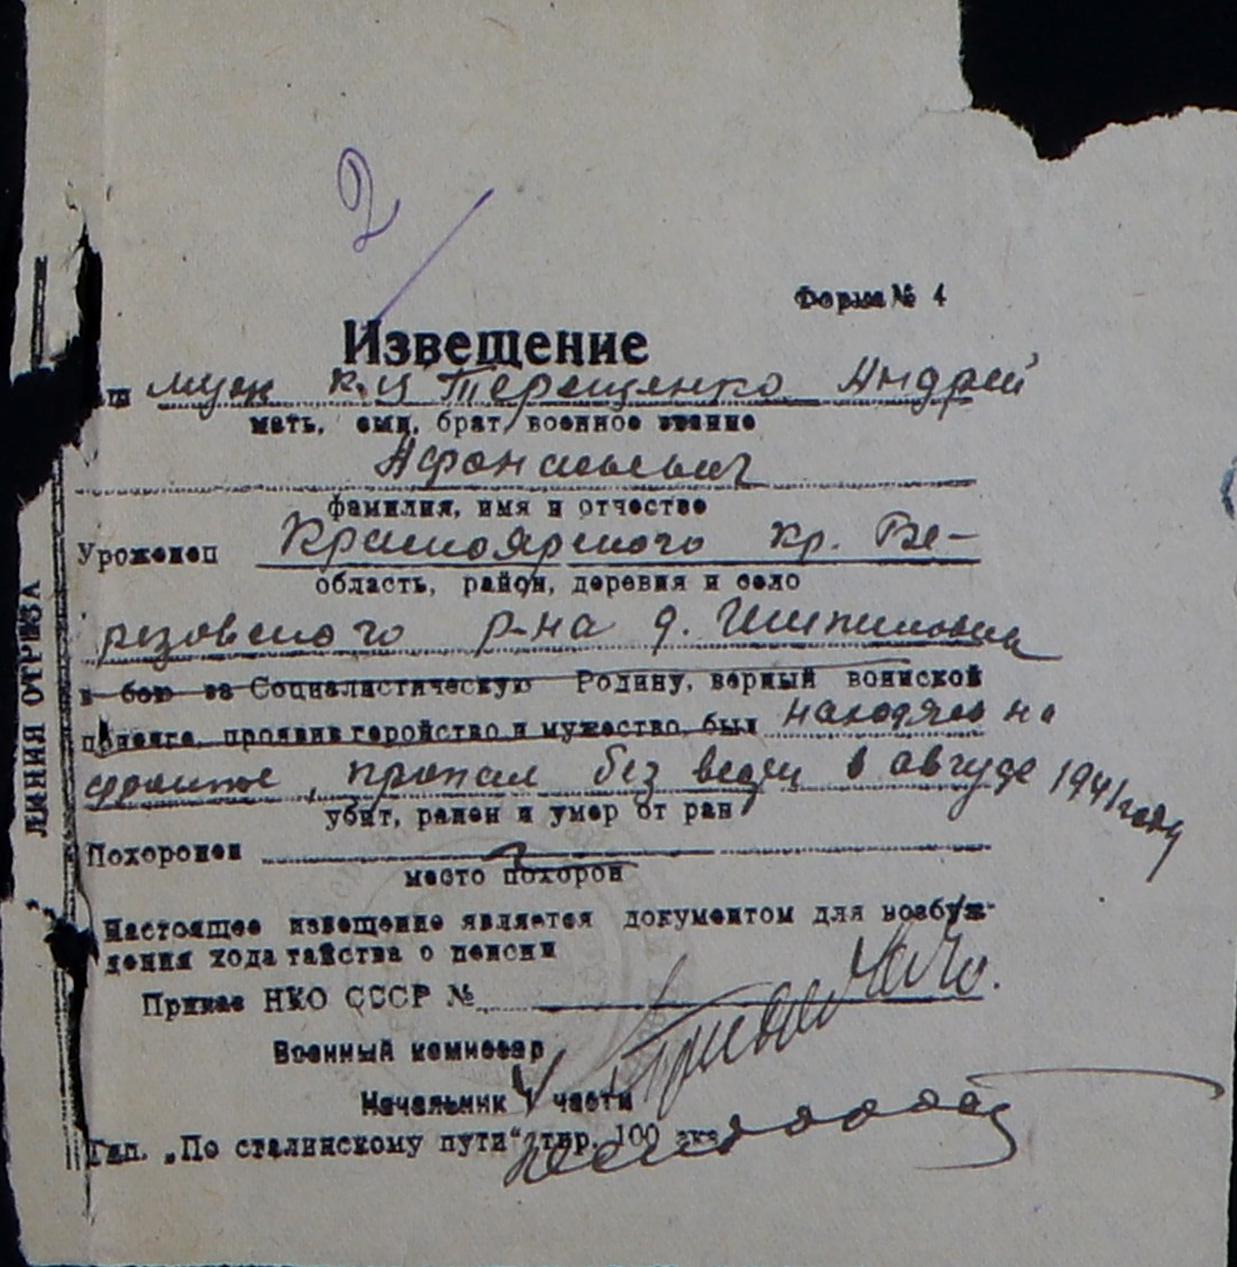 2
Форма № 4
Извещение
муж к-ц Терещенко Андрей
мать, сын, брат, военное звание
Афонасьевич
фамилия, имя и отчество
Уроженец Красноярского кр. Бе-
область, район, деревня и село
резовского р-на д.
в бою за Социалистическую Родину, верный воинской
присяге, проявив геройство и мужество, был находясь на
фронте, пропал без вести в августе 1941 году
убит, ранен и умер от ран
Похоронен
место похорон
Настоящее извещение является документом для возбуж-
дения ходатайства о пенсии
Приказ НКО СССР №
Военный комиссар
Начальник части
Тип. „По сталинскому пути“, тир. 100 экз.
ЛИНИЯ ОТРЕЗА